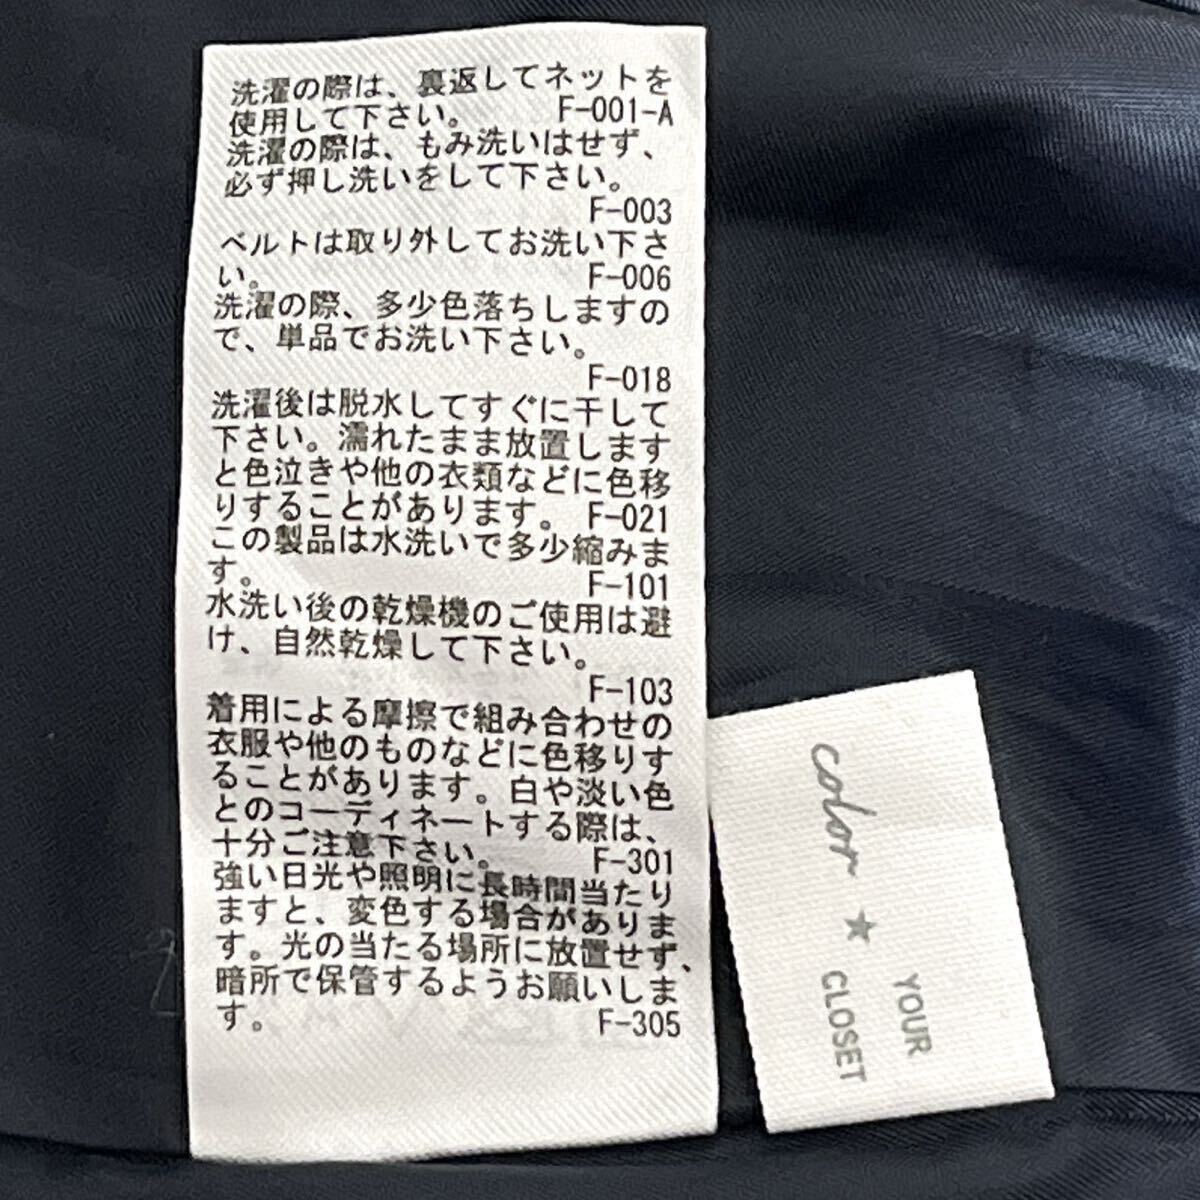 洗濯の際は、裏返してネットを
使用して下さい。 F-001-A
洗濯の際は、もみ洗いはせず、
必ず押し洗いをして下さい。
F-003
ベルトは取り外してお洗い下さ
い。 F-006
洗濯の際、多少色落ちしますの
で、単品でお洗い下さい。
F-018
洗濯後は脱水してすぐに干して
下さい。濡れたまま放置します
と色泣きや他の衣類などに色移
りすることがあります。 F-021
この製品は水洗いで多少縮みま
す。 F-101
水洗い後の乾燥機のご使用は避
け、自然乾燥して下さい。
F-103
着用による摩擦で組み合わせの
衣服や他のものなどに色移りす
ることがあります。白や淡い色
とのコーディネートする際は、
十分ご注意下さい。 F-301
強い日光や照明に長時間当たり
ますと、変色する場合がありま
す。光の当たる場所に放置せず、
暗所で保管するようお願いしま
す。 F-305
color ★
YOUR
CLOSET